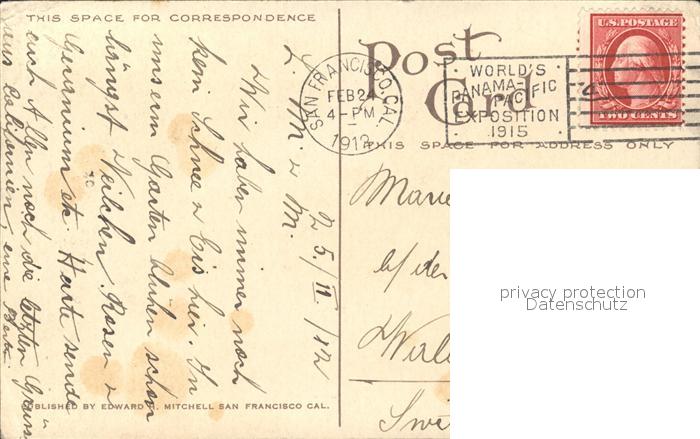 THIS SPACE FOR CORRESPONDENCE
25./II/12
L. M. u M.
Wir haben immer noch
kein Schnee u Eis hier. In
unserm Garten blühen schon
längst Veilchen, Rosen u
Geranium etc. Karte sende
euch Allen noch die letzten Grüsse
aus Californien, eure
PUBLISHED BY EDWARD H. MITCHELL SAN FRANCISCO CAL.
Post
Card
SAN FRANCISCO, CAL.
FEB 24
4-PM
1912
WORLD'S
PANAMA-PACIFIC
EXPOSITION
1915
U.S. POSTAGE
TWO CENTS
THIS SPACE FOR ADDRESS ONLY
Marie
b/ der
Swi
privacy protection
Datenschutz